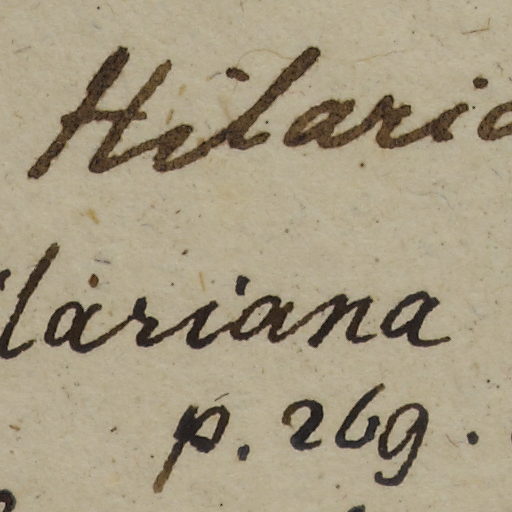 Hilaria
ilariana
p. 269.